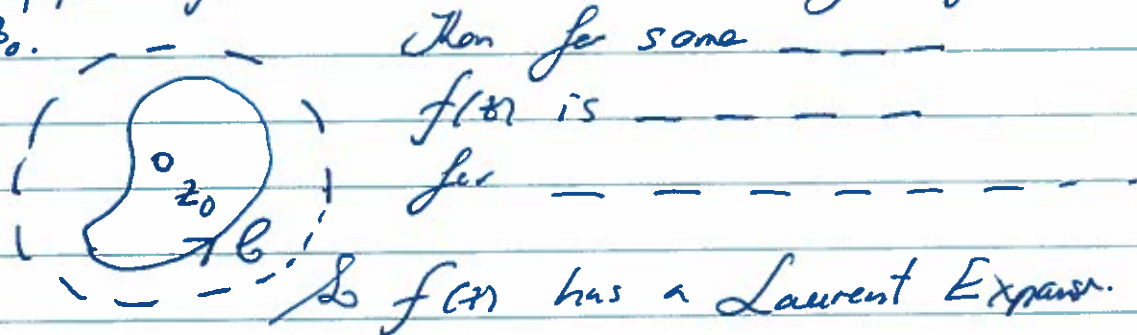 z₀. Then for some _ _ _ _
f(z) is _ _ _ _
z₀ for _ _ _ _ _ _ _ _
C
So f(z) has a Laurent Expansn.